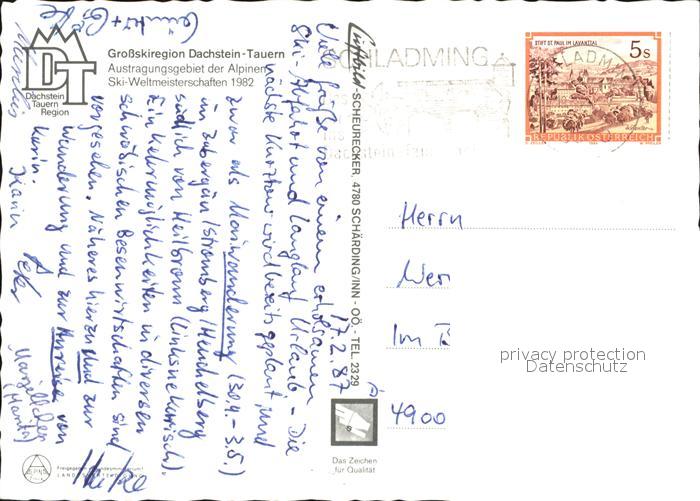 Großskiregion Dachstein-Tauern
Austragungsgebiet der Alpinen
Ski-Weltmeisterschaften 1982
DT
Dachstein
Tauern
Region
SCHLADMING
STIFT ST. PAUL IM LAVANTTAL
5 s
REPUBLIK ÖSTERREICH
17.2.87
Viele Grüße von einem erholsamen
Ski-Abfahrt und Langlauf Urlaub - Die
nächste Kurztour wird bereits geplant, und
zwar als Maiwanderung (30.4.-3.5.)
im Zabergäu/Stromberg/Heuchelberg
südlich von Heilbronn (linksneckarisch).
Einkehrmöglichkeiten in diversen
schwäbischen Besenwirtschaften sind
vorgesehen. Näheres hierzu und zur
Wanderung und zur Anreise von
Karin.
Karin Peter
(Moritz)
Heike
Günter +
Luftbild-SCHEURECKER, 4780 SCHÄRDING/INN - OÖ. - TEL. 2329
Herrn
Wer
Im
4900
privacy protection
Datenschutz
Das Zeichen
für Qualität